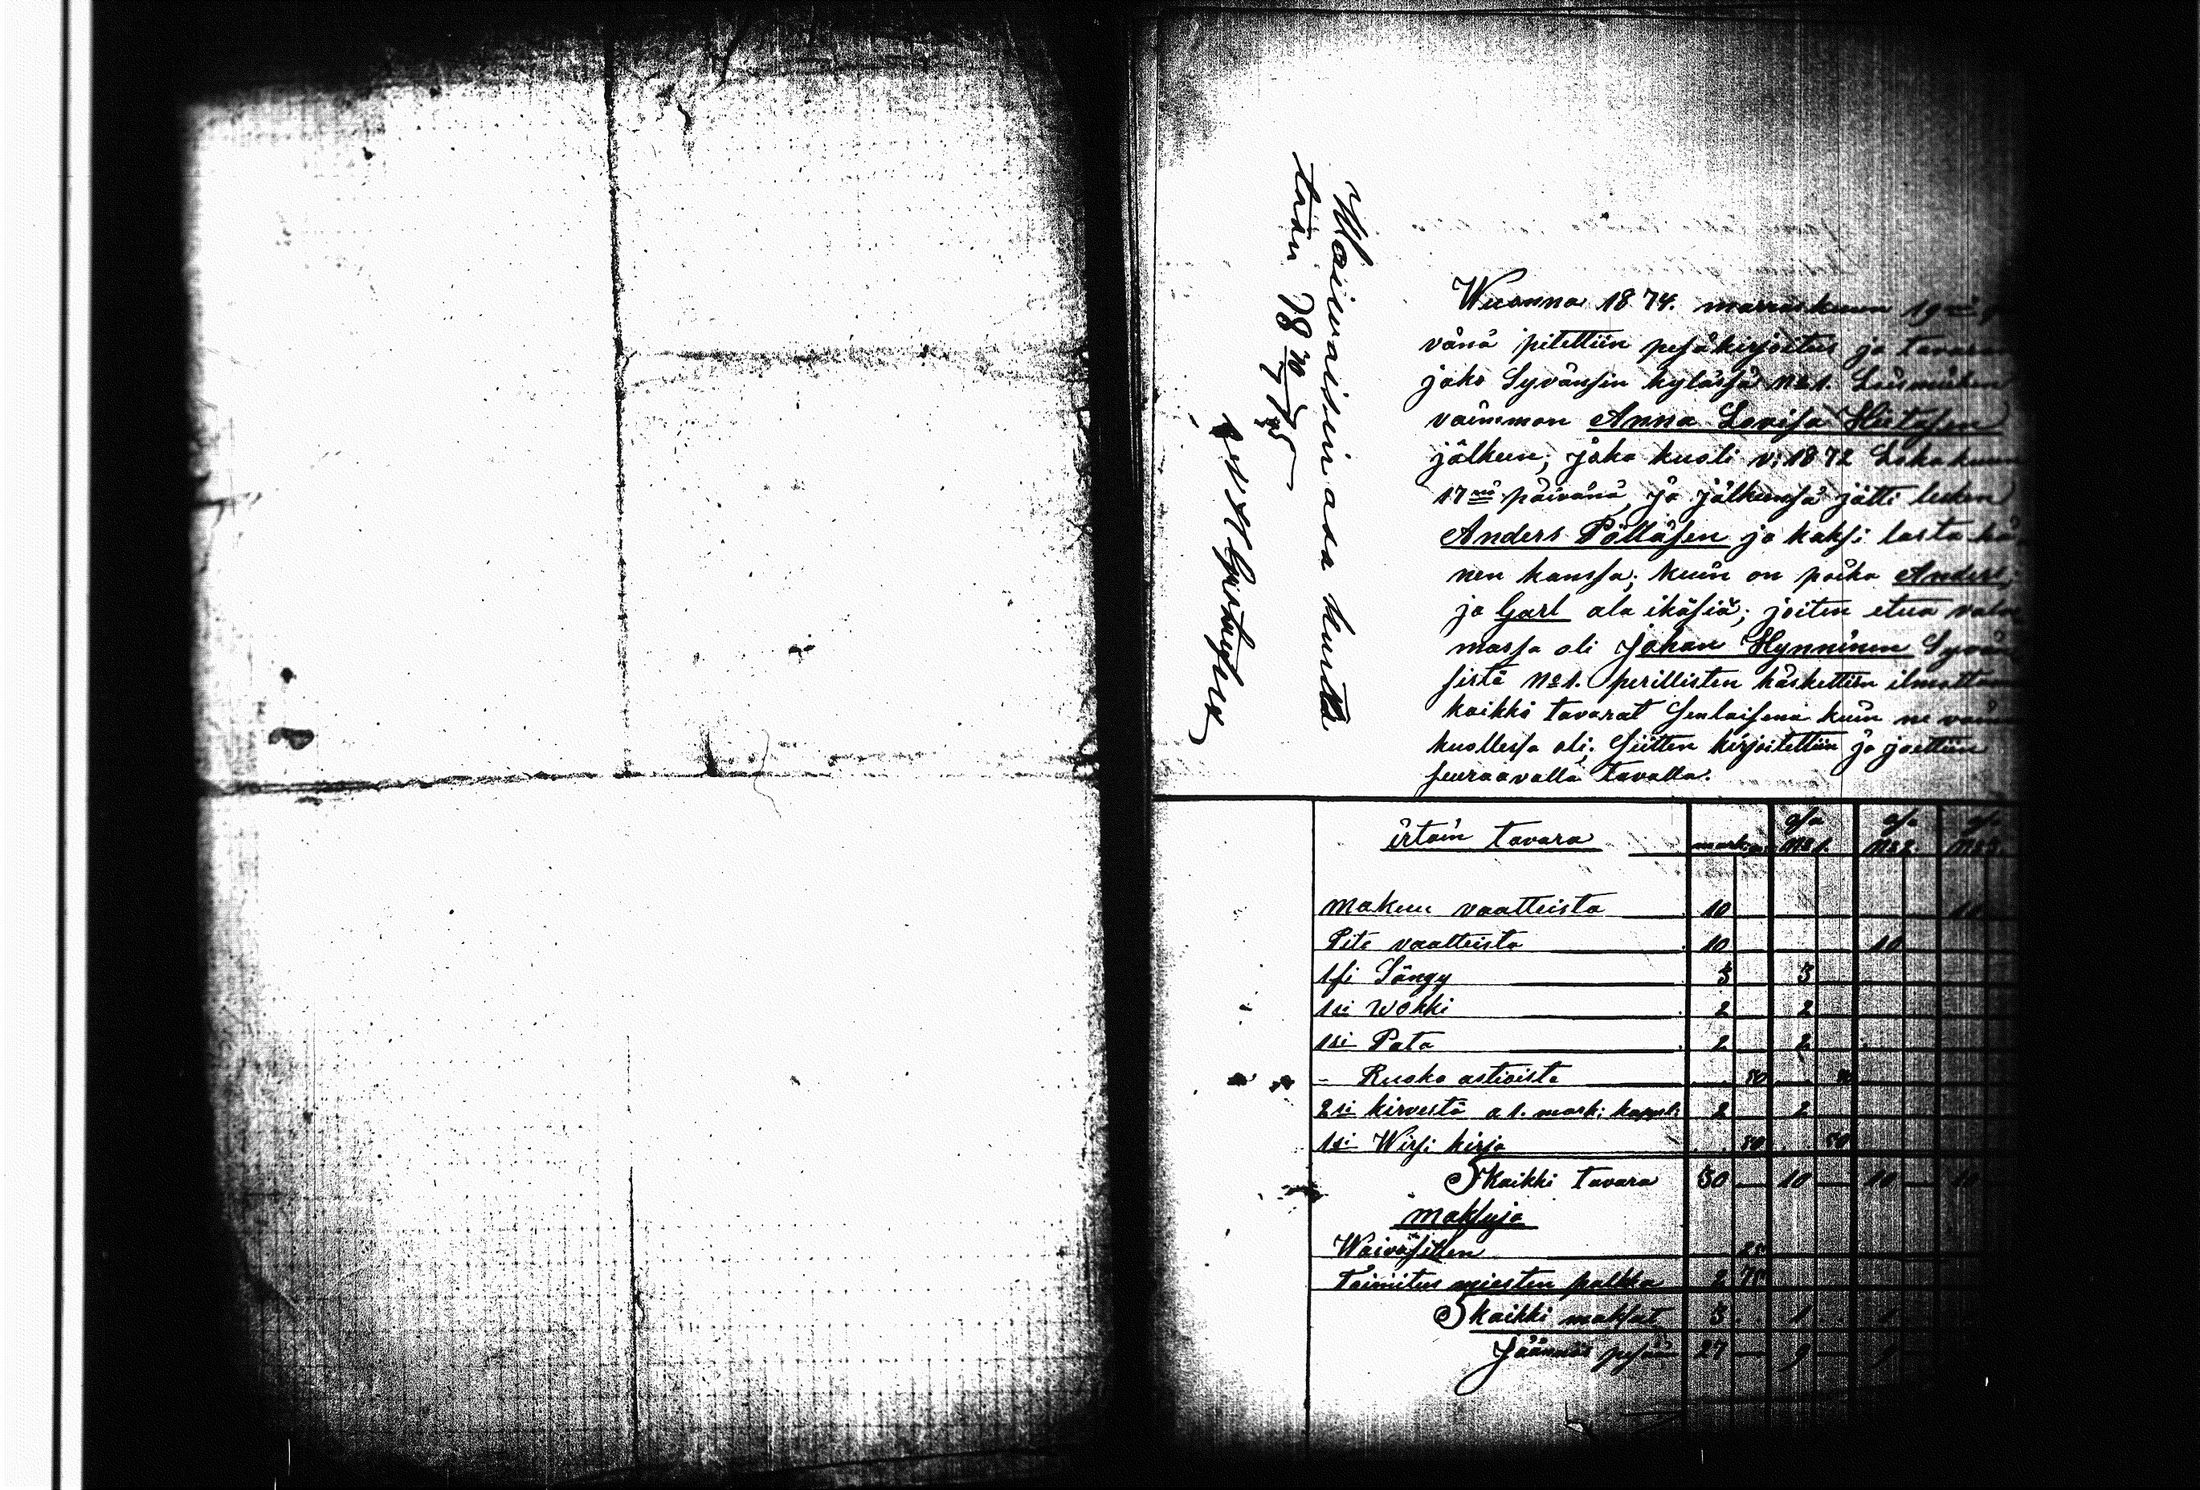 Waivaisten osa kuitattu
tään 78 10/7 75

Wuonna 1874. marraskuun 19nä
vänä pitettiin pesäkirjoitus ja tavaran
jako Syvänsin kylässä No 1. Loismiehen
vaimmon Anna Lovisa Hietasen
jälkeen; joka kuoli v; 1872 Lokakuun
17nä päivänä, ja jälkeensä jätti lesken
Anders Pölläsen ja kaksi lasta hä
nen kanssa; kuin on poika Anders;
ja Carl ala ikäsiä; joiten etua valvo
massa oli Johan Hynninen Syvän
sistä No 1. perillisten käskettiin ilmottaa
kaikki tavarat senlaisena kuin ne vaimon
kuollessa oli; siitten kirjoitettiin ja jaettiin
seuraavalla tavalla.
irtain tavara mark: p: osa No 1. osa No 2. osa No 3.
makuu vaatteista 10 10
Pito vaatteista 10 10
1si Sängy 3 3
1si wokki 2 2
1si Pata 2 2
- Ruoka astioista 50 50
2si kirvestä a 1. mark: kappal: 2 2
1si Wirsi kirja 50 50
S kaikki tavara 30 — 10 — 10 — 10
maksuja
Waivasillen 25
Toimitus miesten palkka 2 75
S kaikki maksut 3 . 1 . 1
Jäännös pesään 27 — 9 — 9